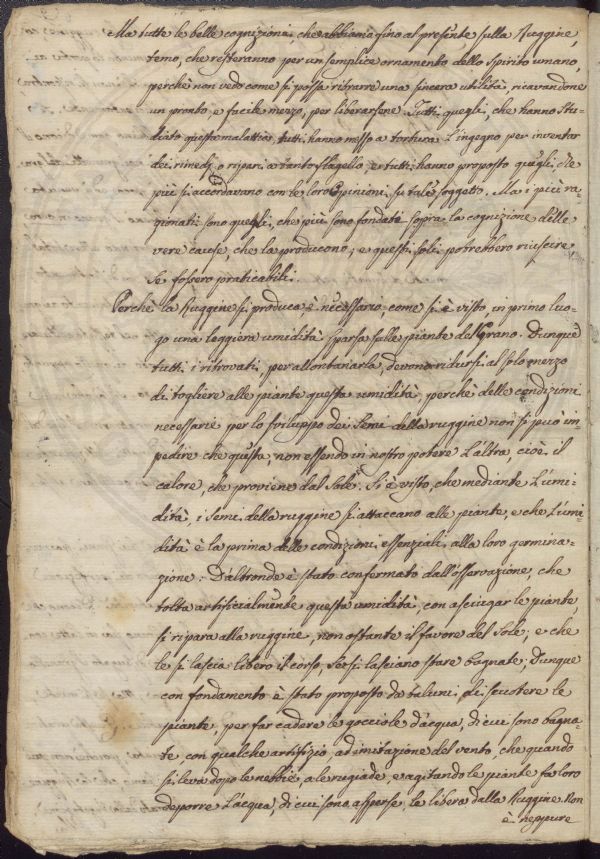 Ma tutte le belle cognizioni, che abbiamo fino al presente sulla Ruggine,
temo, che resteranno per un semplice ornamento dello Spirito umano,
perchè non vedo come si possa ritrarre una sincera utilità, ricavandone
un pronto e facile mezzo, per liberarsene. Tutti quegli, che hanno stu-
diato questa malattia, tutti hanno messo a tortura l'ingegno per inventar
dei rimedj o ripari a tanto flagello, e tutti hanno proposto quegli che
più si accordavano con le loro Opinioni su tale soggetto. Ma i più ra-
gionati sono quegli, che più sono fondati sopra la cognizione delle
vere cause, che la producono; e questi soli potrebbero riuscire
se fossero praticabili.
Perchè la Ruggine si produca è necessario, come si è visto, in primo luo-
go una leggiera umidità sparsa sulle piante del Grano. Dunque
tutti i ritrovati, per allontanarla, devono ridursi al solo mezzo
di togliere alle piante questa umidità, perchè delle condizioni
necessarie per lo sviluppo dei Semi della ruggine non si può im-
pedire che questa, non essendo in nostro potere l'altra, cioè il
calore, che proviene dal Sole. Si è visto, che mediante l'umi-
dità, i Semi della ruggine si attaccano alle piante, e che l'umi-
dità è la prima delle condizioni essenziali alla loro germina-
zione. D'altronde è stato confermato dall'osservazione, che
tolta artificialmente questa umidità, con asciugar le piante,
si ripara alla ruggine, non ostante il favore del Sole; e che
le si lascia libero il corso, se si lasciano stare bagnate. Dunque
con fondamento è stato proposto da taluni di scuotere le
piante, per far cadere le gocciole d'acqua, di cui sono bagna-
te, con qualche artifizio ad imitazione del vento, che quando
si leva dopo le nebbie, o le rugiade, e agitando le piante fa loro
deporre l'acqua, di cui sono asperse, le libera dalla Ruggine. Non
è neppure